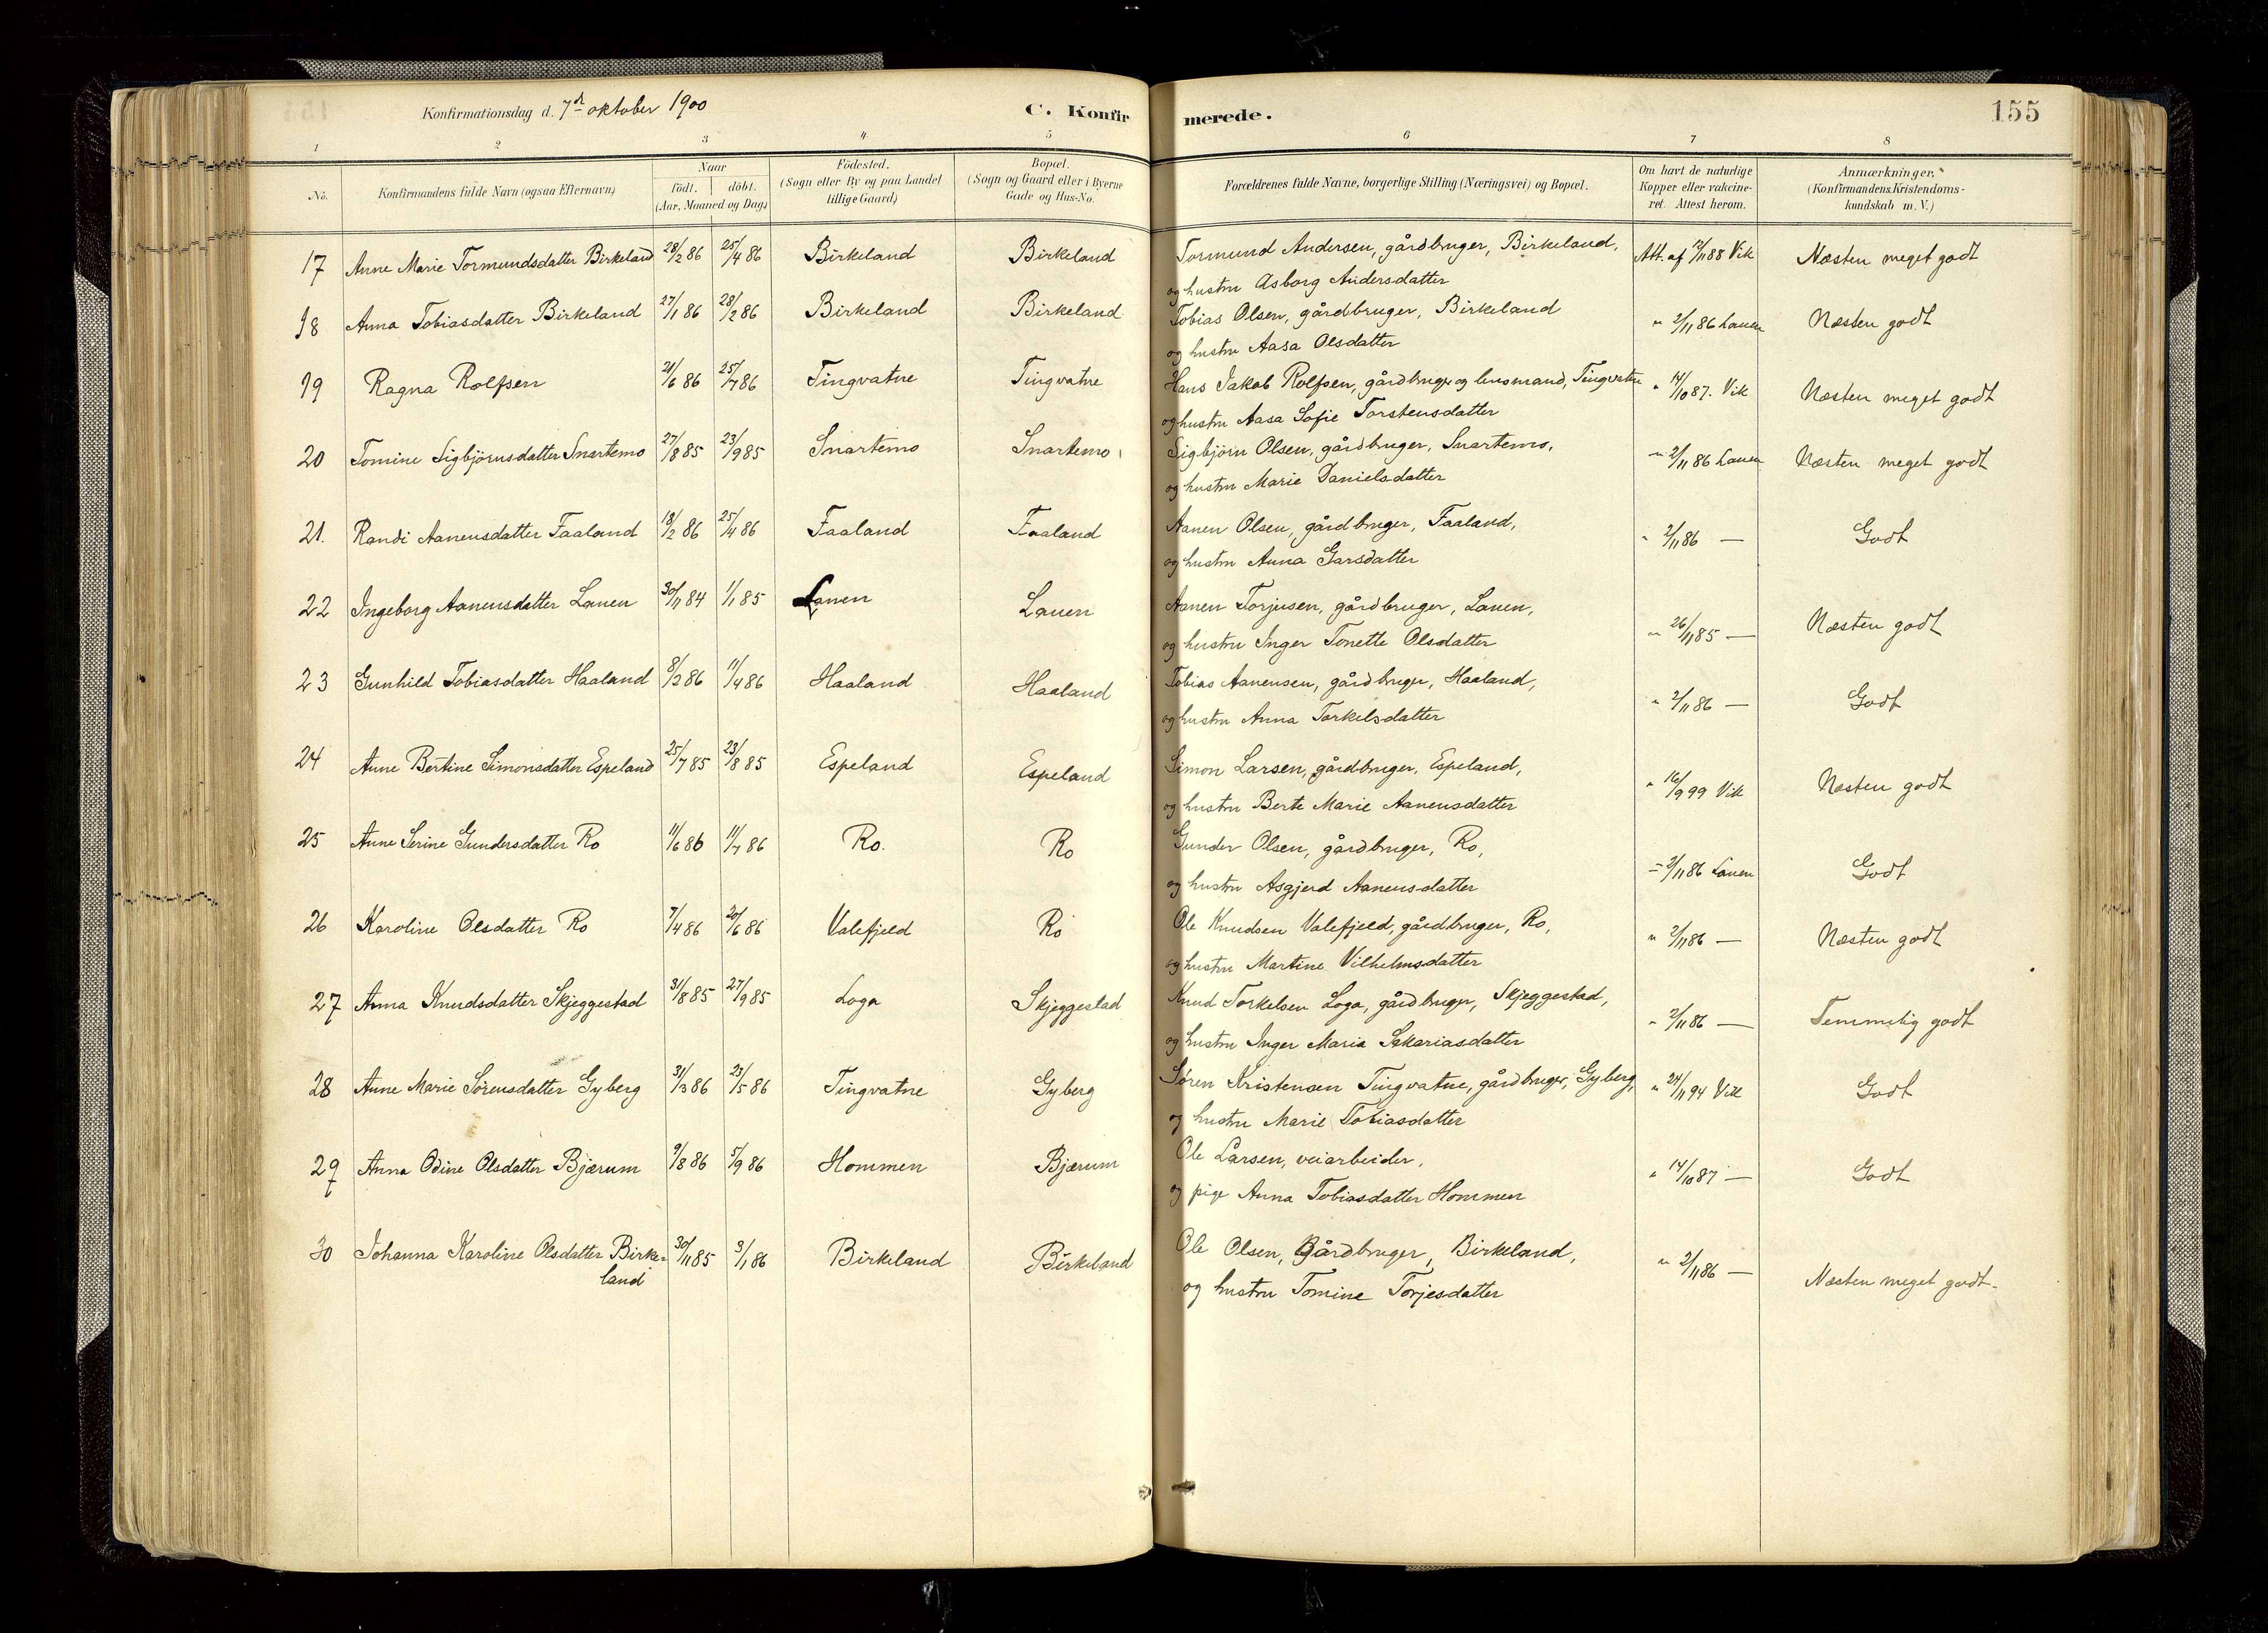 Konfirmationsdag d. 7de oktober 1900
C. Konfirmerede.
155
1 2 3 4 5 6 7 8
No.
Konfirmandens fulde Navn (ogsaa Efternavn)
Naar
födt. döbt.
(Aar, Maaned og Dag)
Födested.
(Sogn eller By og paa Landet
tillige Gaard)
Bopæl.
(Sogn og Gaard eller i Byerne
Gade og Hus-No.
Forældrenes fulde Navne, borgerlige Stilling (Næringsvei) og Bopæl.
Om havt de naturlige
Kopper eller vakcine-
ret. Attest herom.
Anmærkninger.
(Konfirmandens Kristendoms-
kundskab m. V.)
17 Anne Marie Tormundsdatter Birkeland 28/2 86 25/4 86 Birkeland Birkeland Tormund Andersen, gårdbruger, Birkeland, Att. af 12/11 88 Vik Næsten meget godt
og hustru Asborg Andersdatter
18 Anna Tobiasdatter Birkeland 27/1 86 28/2 86 Birkeland Birkeland Tobias Olsen, gårdbruger, Birkeland " 2/11 86 Lauen Næsten godt
og hustru Aasa Olsdatter
19 Ragna Rolfsen 21/6 86 25/7 86 Tingvatne Tingvatne Hans Jakob Rolfsen, gårdbruger og lensmand, Tingvatne " 14/10 87. Vik Næsten meget godt
og hustru Aasa Sofie Torstensdatter
20 Tomine Sigbjörnsdatter Snartemo 27/8 85 23/9 85 Snartemo Snartemo Sigbjörn Olsen, gårdbruger, Snartemo, " 2/11 86 Lauen Næsten meget godt
og hustru Marie Danielsdatter
21. Randi Aanensdatter Faaland 18/2 86 25/4 86 Faaland Faaland Aanen Olsen, gårdbruger, Faaland, " 2/11 86 — Godt
og hustru Anna Garsdatter
22 Ingeborg Aanensdatter Lauen 30/11 84 1/1 85 Lauen Lauen Aanen Torjusen, gårdbruger, Lauen,
og hustru Inger Tonette Olsdatter " 26/11 85 — Næsten godt
23 Gunhild Tobiasdatter Haaland 8/2 86 11/4 86 Haaland Haaland Tobias Aanensen, gårdbruger, Haaland,
og hustru Anna Torkelsdatter " 2/11 86 — Godt
24 Anne Bertine Simonsdatter Espeland 25/7 85 23/8 85 Espeland Espeland Simon Larsen, gårdbruger, Espeland,
og hustru Berte Marie Aanensdatter " 16/9 99 Vik Næsten godt
25 Anne Serine Gundersdatter Ro 11/6 86 11/7 86 Ro. Ro Gunder Olsen, gårdbruger, Ro,
og hustru Asgjerd Aanensdatter " 2/11 86 Lauen Godt
26 Karoline Olsdatter Ro 7/4 86 20/6 86 Valefjeld Ro Ole Knudsen Valefjeld, gårdbruger, Ro, " 2/11 86 — Næsten godt
og hustru Martine Vilhelmsdatter
27 Anna Knudsdatter Skjeggestad 31/8 85 27/9 85 Loga Skjeggestad Knud Torkelsen Loga, gårdbruger, Skjeggestad,
og hustru Inger Maria Sakariasdatter " 2/11 86 — Temmelig godt
28 Anne Marie Sörensdatter Gyberg 31/3 86 23/5 86 Tingvatne Gyberg Sören Kristensen Tingvatne, gårdbruger, Gyberg, " 24/11 94 Vik Godt
og hustru Marie Tobiasdatter
29 Anna Odine Olsdatter Bjærum 9/8 86 5/9 86 Hommen Bjærum Ole Larsen, veiarbeider,
og pige Anna Tobiasdatter Hommen " 14/10 87 — Godt
30 Johanna Karoline Olsdatter Birke- 30/11 85 3/1 86 Birkeland Birkeland Ole Olsen, Gårdbruger, Birkeland, " 2/11 86 —
land og hustru Tomine Torjesdatter Næsten meget godt.